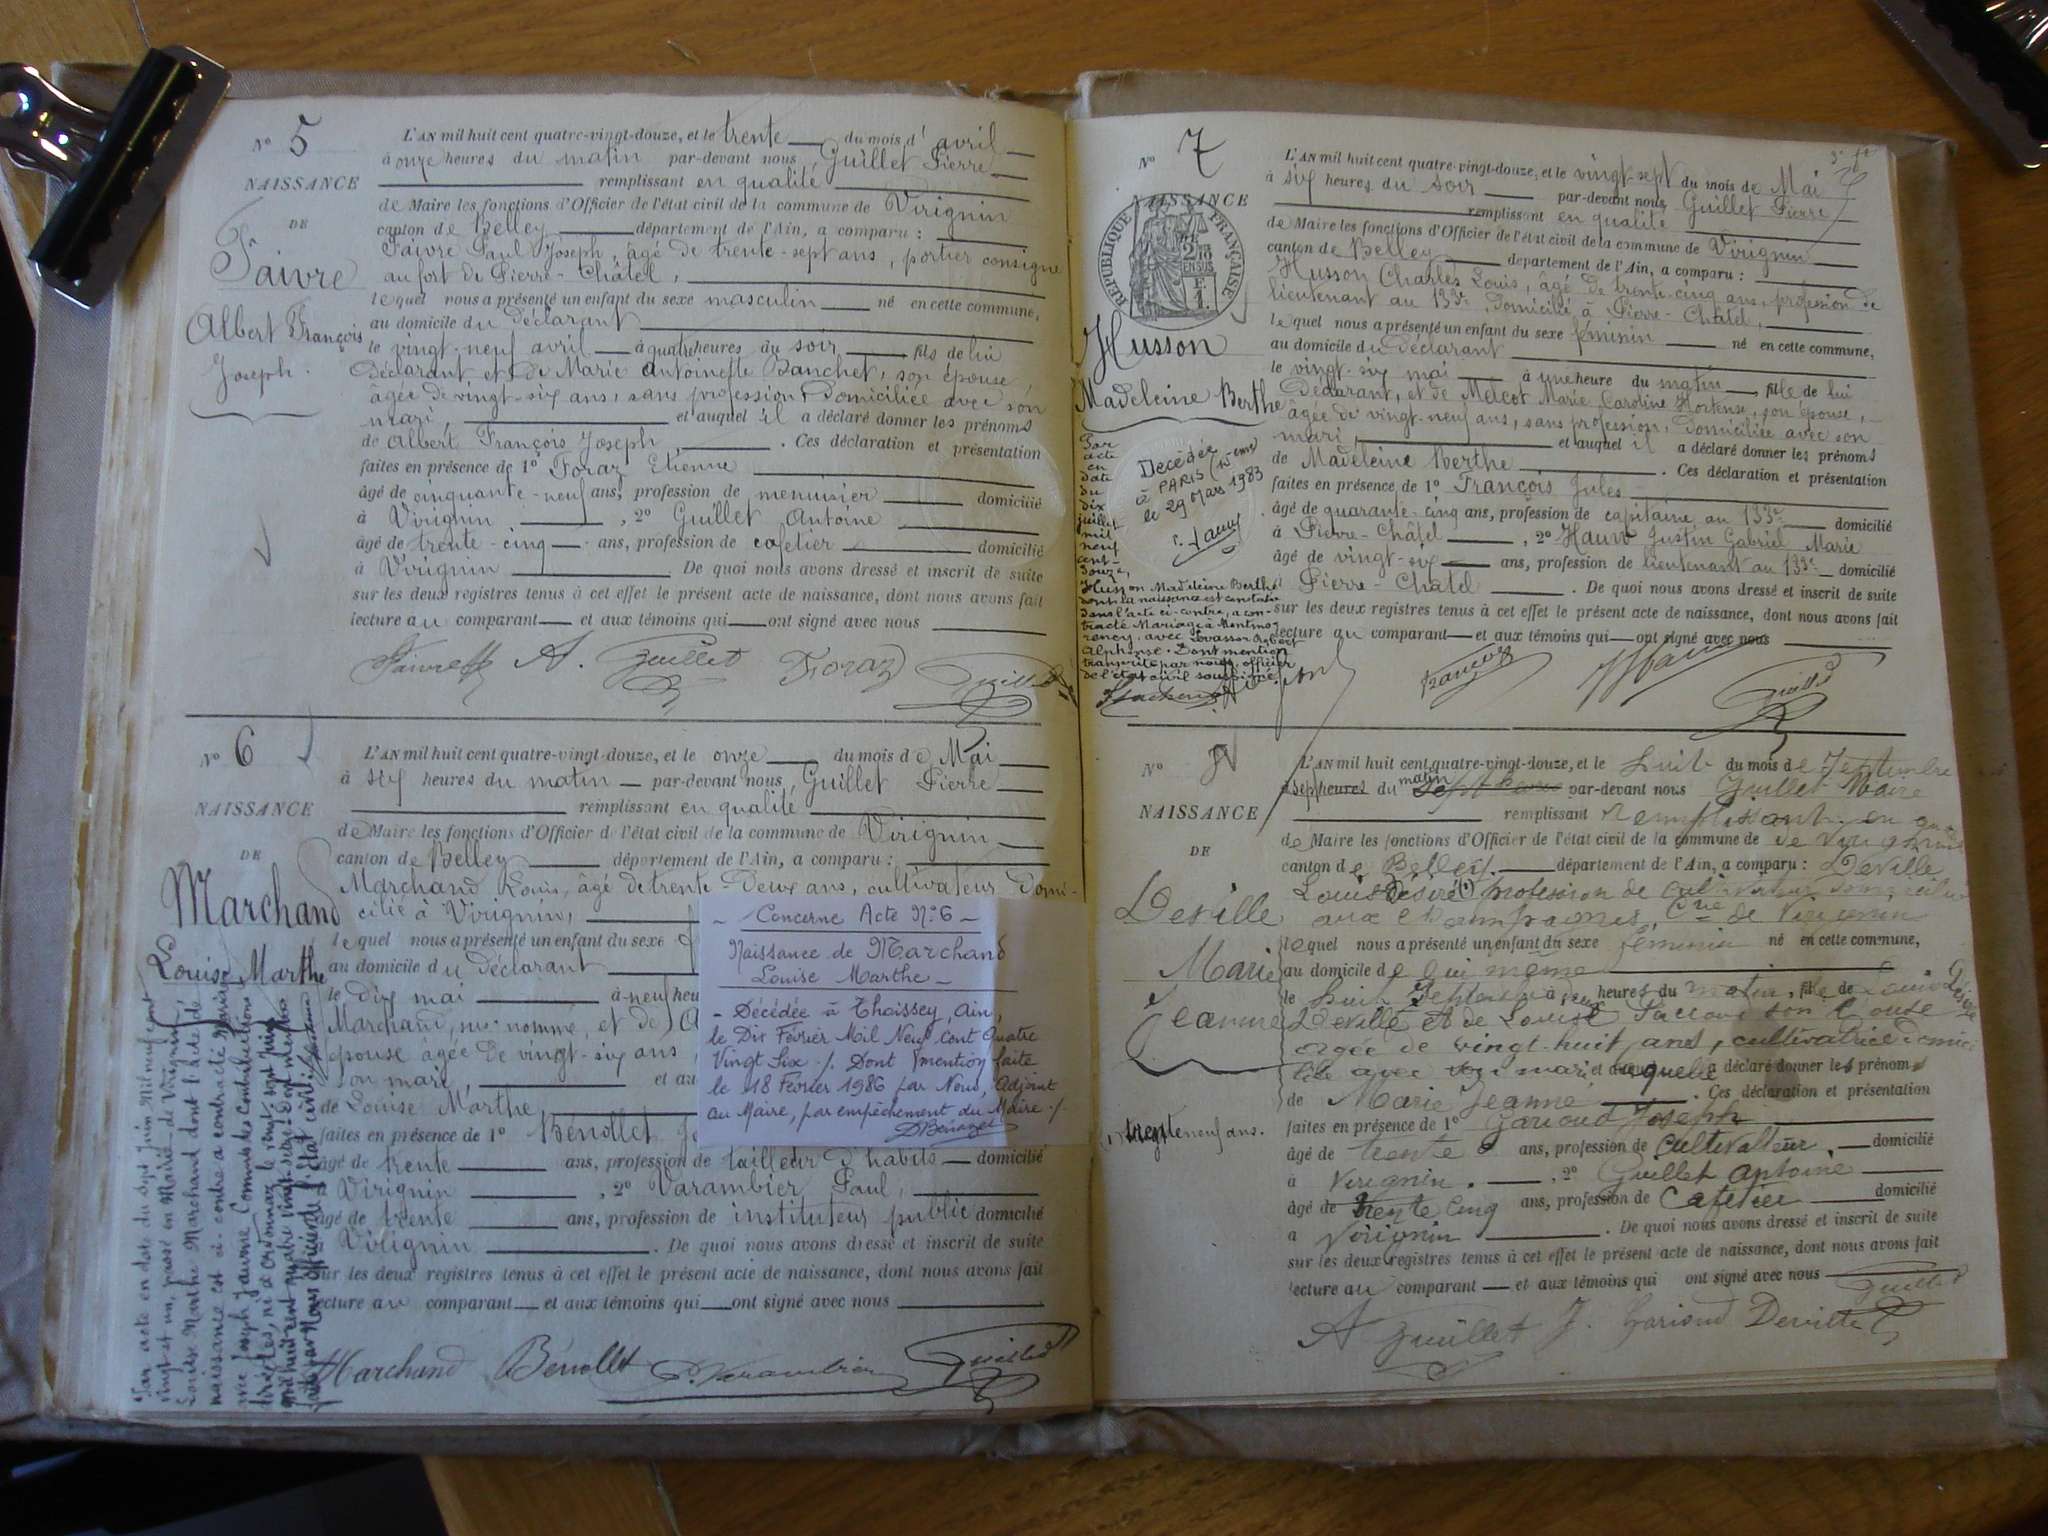 N° 5
NAISSANCE
DE
Faivre
Albert François
Joseph.
L'AN mil huit cent quatre-vingt-douze, et le trente du mois d' avril
à onze heures du matin par-devant nous, Guillet Pierre
remplissant en qualité
de Maire les fonctions d'Officier de l'état civil de la commune de Virignin
canton de Belley département de l'Ain, a comparu :
Faivre Paul Joseph, âgé de trente-sept ans, portier consigne
au fort de Pierre-Châtel,
lequel nous a présenté un enfant du sexe masculin né en cette commune,
au domicile du déclarant
le vingt-neuf avril à quatre heures du soir fils de lui
déclarant et de Marie Antoinette Banchet, son épouse,
âgée de vingt-six ans, sans profession, domiciliée avec son
mari, et auquel il a déclaré donner les prénoms
de Albert François Joseph . Ces déclaration et présentation
faites en présence de 1° Foraz Etienne
âgé de cinquante-neuf ans, profession de menuisier domicilié
à Virignin , 2° Guillet Antoine
âgé de trente-cinq ans, profession de cafetier domicilié
à Virignin . De quoi nous avons dressé et inscrit de suite
sur les deux registres tenus à cet effet le présent acte de naissance, dont nous avons fait
lecture au comparant et aux témoins qui ont signé avec nous
Faivre A. Guillet Foraz Guillet
N° 6
NAISSANCE
DE
Marchand
Louise Marthe
L'AN mil huit cent quatre-vingt-douze, et le onze du mois de Mai
à six heures du matin par-devant nous, Guillet Pierre
remplissant en qualité
de Maire les fonctions d'Officier de l'état civil de la commune de Virignin
canton de Belley département de l'Ain, a comparu :
Marchand Louis, âgé de trente-deux ans, cultivateur domi-
cilié à Virignin,
lequel nous a présenté un enfant du sexe f
au domicile du déclarant
le dix mai à neuf heu
Marchand, sus nommé, et de A
épouse âgée de vingt-six ans,
son mari, et au
de Louise Marthe
faites en présence de 1° Bénollet
âgé de trente ans, profession de tailleur d'habits domicilié
à Virignin , 2° Varambier Paul,
âgé de trente ans, profession de instituteur public domicilié
à Virignin . De quoi nous avons dressé et inscrit de suite
sur les deux registres tenus à cet effet le présent acte de naissance, dont nous avons fait
lecture au comparant et aux témoins qui ont signé avec nous
Marchand Bénollet P. Varambier Guillet
Par acte en date du sept juin Mil neuf cent
vingt et un, passé en Mairie de Virignin,
Louise Marthe Marchand dont l'acte de
naissance est ci-contre a contracté mariage
avec Joseph Commis des Contributions
directes, né à
mil huit cent quatre vingt seize. Dont mention
faite par Nous officier de l'état civil.
- Concerne Acte N°6 -
Naissance de Marchand
Louise Marthe -
- Décédée à Thoissey, Ain,
le Dix Février Mil Neuf Cent Quatre
Vingt Six -/. Dont mention faite
le 18 Février 1986 par Nous, Adjoint
au Maire, par empêchement du Maire -/.
N° 7
NAISSANCE
RÉPUBLIQUE FRANÇAISE
2/10 EN SUS
Husson
Madeleine Berthe
L'AN mil huit cent quatre-vingt-douze, et le vingt-sept du mois de Mai
à six heures du soir par-devant nous, Guillet Pierre
remplissant en qualité
de Maire les fonctions d'Officier de l'état civil de la commune de Virignin
canton de Belley département de l'Ain, a comparu :
Husson Charles Louis, âgé de trente-cinq ans, profession de
lieutenant au 133e, domicilié à Pierre-Châtel,
lequel nous a présenté un enfant du sexe féminin né en cette commune,
au domicile du déclarant
le vingt-six mai à une heure du matin, fille de lui
déclarant, et de Melcot Marie Caroline Hortense, son épouse,
âgée de vingt-neuf ans, sans profession, domiciliée avec son
mari, et auquel il a déclaré donner les prénoms
de Madeleine Berthe . Ces déclaration et présentation
faites en présence de 1° François Jules
âgé de quarante-cinq ans, profession de capitaine au 133e domicilié
à Pierre-Châtel , 2° Hauw Justin Gabriel Marie
âgé de vingt-six ans, profession de lieutenant au 133e domicilié
Pierre-Châtel . De quoi nous avons dressé et inscrit de suite
sur les deux registres tenus à cet effet le présent acte de naissance, dont nous avons fait
lecture au comparant et aux témoins qui ont signé avec nous
François Guillet
Décédée
à PARIS (15 eme)
le 29 Mars 1983
Par
acte
en
date
du
dix
juillet
mil
neuf
cent-
douze,
Husson Madeleine Berthe
dont la naissance est constatée
dans l'acte ci-contre, a con-
tracté Mariage à Montmo-
rency, avec Levassor Robert
Alphonse. Dont mention
transcrite par nous, officier
de l'état civil soussigné.
N° 8
NAISSANCE
DE
Deville
Marie
Jeanne
L'AN mil huit cent quatre-vingt-douze, et le huit du mois de Septembre
à sept heures du matin par-devant nous Guillet Maire
remplissant Remplissant en
de Maire les fonctions d'Officier de l'état civil de la commune de de Virignin
canton de Belley. département de l'Ain, a comparu : Deville
Louis Désiré (1) profession de cultivateur
aux Champagnes, Cne de Virignin
lequel nous a présenté un enfant du sexe féminin né en cette commune,
au domicile de lui même
le huit Septembre à deux heures du matin, fille de Louis Désiré
Deville et de Louise son Epouse
agée de vingt-huit ans, cultivatrice domici
liée avec son mari et auquelle a déclaré donner les prénoms
de Marie Jeanne . Ces déclaration et présentation
faites en présence de 1° Garioud Joseph
âgé de trente ans, profession de Cultivateur, domicilié
à Virignin. , 2° Guillet Antoine
âgé de trente cinq ans, profession de Cafetier domicilié
à Virignin . De quoi nous avons dressé et inscrit de suite
sur les deux registres tenus à cet effet le présent acte de naissance, dont nous avons fait
lecture au comparant et aux témoins qui ont signé avec nous
Guillet
A Guillet J. Garioud Deville
(1) trente neuf ans.